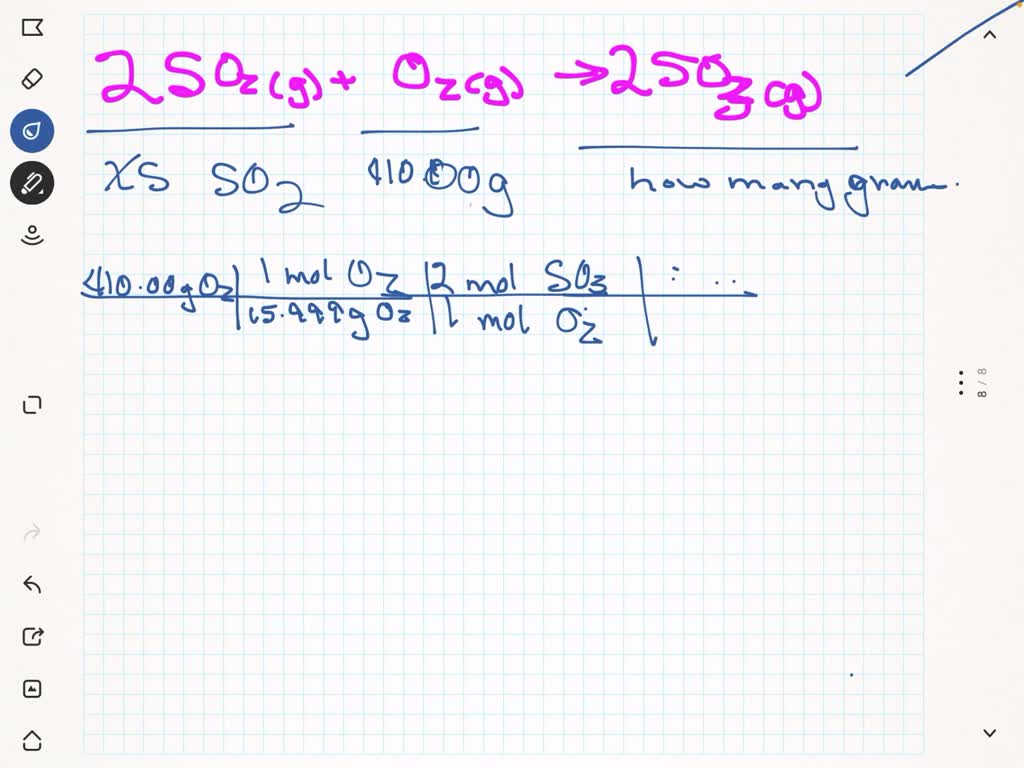 2SO₂(g) + O₂(g) → 2SO₃(g)
XS SO₂ 410.00g how many gram.
410.00g O₂ | 1 mol O₂ | 2 mol SO₃ | : ..
15.999g O₂ | 1 mol O₂
8 / 8